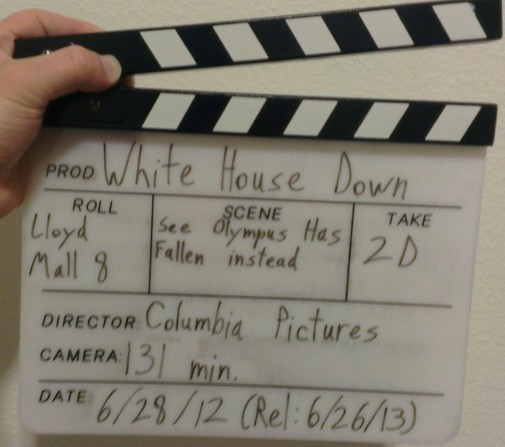 PROD. White House Down
ROLL
Lloyd
Mall 8
SCENE
See Olympus Has
Fallen instead
TAKE
2D
DIRECTOR: Columbia Pictures
CAMERA: 131 min.
DATE: 6/28/12 (Rel: 6/26/13)